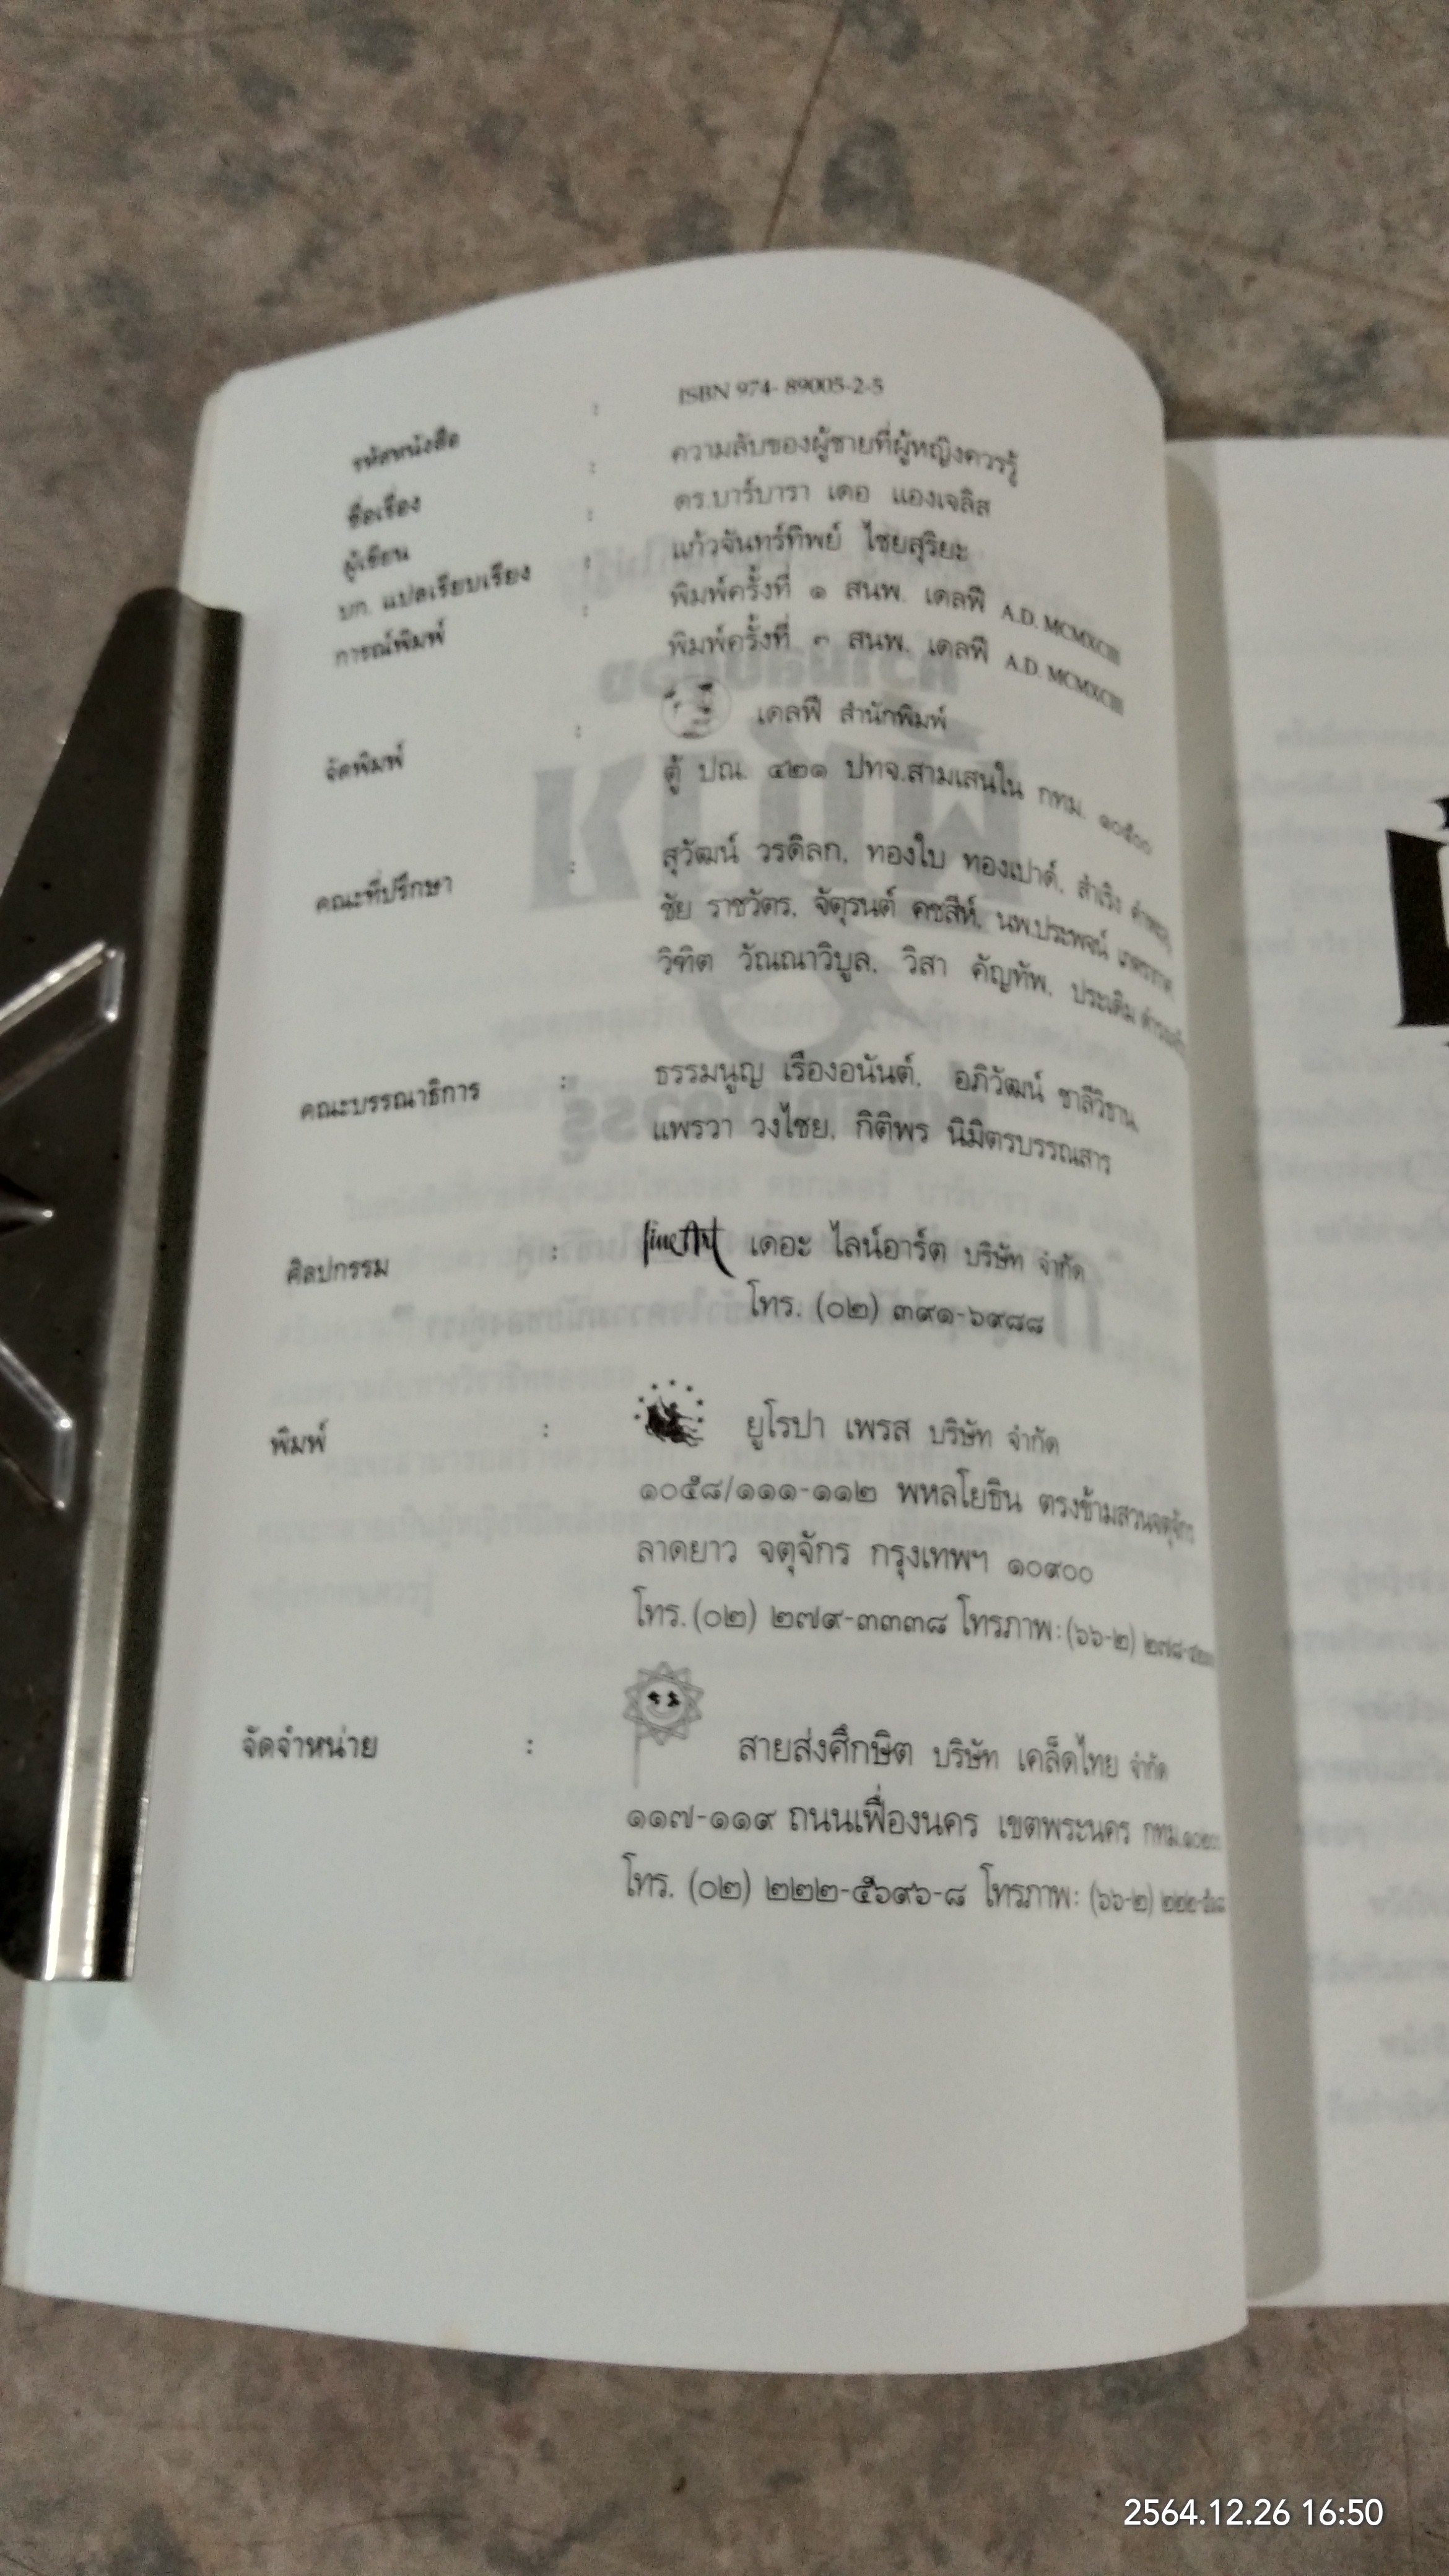 รหัสหนังสือ : ISBN 974- 89005-2-5
ชื่อเรื่อง : ความลับของผู้ชายที่ผู้หญิงควรรู้
ผู้เขียน : ดร.บาร์บารา เดอ แองเจลิส
บก. แปลเรียบเรียง : แก้วจันทร์ทิพย์ ไชยสุริยะ
การณ์พิมพ์ : พิมพ์ครั้งที่ ๑ สนพ. เดลฟี A.D. MCMXCIII
พิมพ์ครั้งที่ ๓ สนพ. เดลฟี A.D. MCMXCIII
จัดพิมพ์ : เดลฟี สำนักพิมพ์
ตู้ ปณ. ๔๒๑ ปทจ.สามเสนใน กทม.
คณะที่ปรึกษา : สุวัฒน์ วรดิลก, ทองใบ ทองเปาด์, สำเริง
ชัย ราชวัตร, จัตุรนต์ คชสีห์, นพ.ประพจน์
วิฑิต วัณณาวิบูล, วิสา คัญทัพ, ประเดิม
คณะบรรณาธิการ : ธรรมนูญ เรืองอนันต์, อภิวัฒน์ ชาลีวิชาน,
แพรวา วงไชย, กิติพร นิมิตรบรรณสาร
ศิลปกรรม : line Art เดอะ ไลน์อาร์ต บริษัท จำกัด
โทร. (๐๒) ๓๙๑-๖๙๘๘
พิมพ์ : ยูโรปา เพรส บริษัท จำกัด
๑๐๕๘/๑๑๑-๑๑๒ พหลโยธิน ตรงข้ามสวนจตุจักร
ลาดยาว จตุจักร กรุงเทพฯ ๑๐๙๐๐
โทร. (๐๒) ๒๗๙-๓๓๓๘ โทรภาพ: (๖๖-๒)
จัดจำหน่าย : สายส่งศึกษิต บริษัท เคล็ดไทย จำกัด
๑๑๗-๑๑๙ ถนนเฟื่องนคร เขตพระนคร กทม.
โทร. (๐๒) ๒๒๒-๕๖๙๖-๘ โทรภาพ: (๖๖-๒)
2564.12.26 16:50